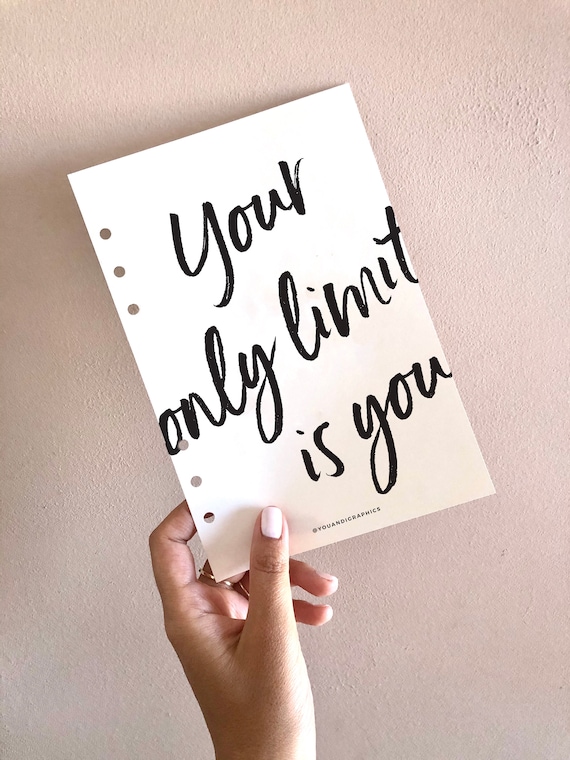 Your
only limit
is you
@YOUANDIGRAPHICS